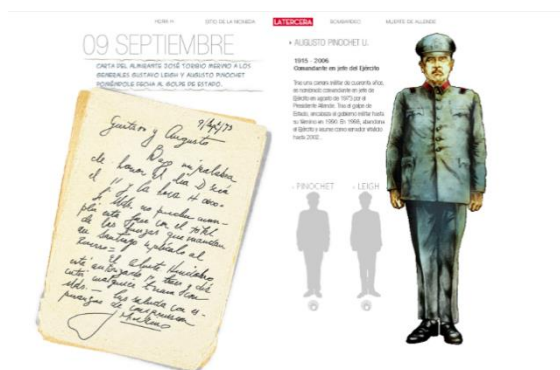 SITIO DE LA MONEDA
LATERCERA
BOMBARDEO
MUERTE DE ALLENDE
09 SEPTIEMBRE
CARTA DEL ALMIRANTE JOSÉ TORIBIO MERINO A LOS
GENERALES GUSTAVO LEIGH Y AUGUSTO PINOCHET
PONIÉNDOLE FECHA AL GOLPE DE ESTADO.
9/Sept/73
Gustavo y Augusto
Bajo mi palabra
de honor el día D será
el 11 y la hora H
Si Uds. no pueden cum-
plir esta fase con el total
de las fuerzas que mandan
en Santiago explícalo al
reverso =
El Almte Huidobro
está autorizado para
cualquier tema con
Uds. — Los saluda con es-
peranzas de comprensión
Merino
AUGUSTO PINOCHET U.
1915 - 2006
Comandante en jefe del Ejército
Tras una carrera militar de cuarenta años,
es nombrado comandante en jefe de
Ejército en agosto de 1973 por el
Presidente Allende. Tras el golpe de
Estado, encabeza el gobierno militar hasta
su término en 1990. En 1998, abandona
el Ejército y asume como senador vitalicio
hasta 2002.
PINOCHET
LEIGH